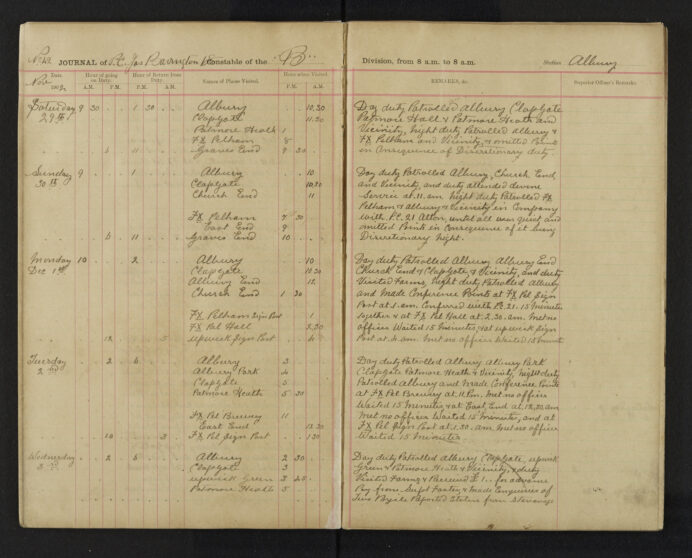 No 42 JOURNAL of P.C. Jas Constable of the "B"
Date. Hour of going on Duty. Hour of Return from Duty. Names of Places Visited. Hour when Visited
Nov 1902 A.M. P.M. P.M. A.M. P.M. A.M.
Saturday 9 30 1 30 Albury 10.30
29th Clapgate 11.30
Patmore Heath 1
Fx Pelham 8
6 11 Graves End 9 30
Sunday 9 1 Albury 10
30th Clapgate 10.20
Church End 11
Fx Pelham 7 30
East End 9
6 11 Graves End 10
Monday 10 2 Albury 10
Dec 1st Clapgate 10.30
Albury End 12
Church End 1 30
Fx Pelham Sign Post 1
Fx Pel Hall 2.30
12 5 upwick Sign Post 4
Tuesday 2 6 Albury 3
2nd Albury Park 4
Clapgate 5
Patmore Heath 5 30
Fx Pel Brewery 11
East End 12.20
10 3 Fx Pel Sign Post 1 30
Wednesday 2 6 Albury 2 30
Clapgate 3
upwick Green 3 45
Patmore Heath 5
Division, from 8 a.m. to 8 a.m. Station Albury
REMARKS, &c. Superior Officer's Remarks.
Day duty Patrolled Albury Clapgate
Patmore Hall & Patmore Heath and
Vicinity, night duty Patrolled albury &
Fx Pelham and Vicinity, & omitted Points
in Consequence of Discretionary duty
Day duty Patrolled Albury, Church End,
and Vicinity, and duty attended devine
Service at 11 am night duty Patrolled Fx
Pelham & Albury & Vicinity in Company
with P.C. 21 until all was quiet and
omitted Points in Consequence of it being
Discretionary night.
Day duty Patrolled Albury Albury End
Church End & Clapgate & Vicinity, and duty
Visited Farms, night duty Patrolled Albury
and made Conference Points at Fx Pel Sign
Post at 1. am. Conferred with P.C. 21. 15 minutes
together & at Fx Pel Hall at 2.30. am. Met no
officer Waited 15 Minutes, & at upwick Sign
Post at 4. am. met no officer Waited 15 minuts
Day duty Patrolled Albury Albury Park
Clapgate Patmore Heath & Vicinity, night duty
Patrolled Albury and Made Conference Points
at Fx Pel Brewery at 11. Pm. Met no officer
Waited 15 Minutes & at East End at 12.20. am
Met no officer Waited 15 Minutes, and at
Fx Pel Sign Post at 1.30. am. Met no officer
Waited 15 Minutes
Day duty Patrolled Albury Clapgate, upwick
Green & Patmore Heath & Vicinity, & duty
Visited Farms & Received £1.. for advance
Pay from Supt & Made Enquiries of
Two Reported Stolen from Stevenage